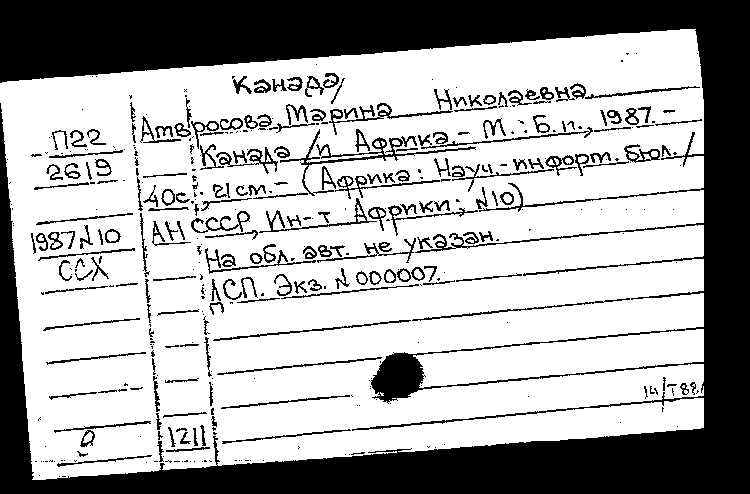 Канада/
Амвросова, Марина Николаевна.
Канада /и Африка.- М.: Б.и., 1987.-
40с.; 21 см.- (Африка: Науч.-информ. бюл./
АН СССР, Ин-т Африки; №10)
На обл. авт. не указан.
ДСП. Экз. №000007.
П22
2619
1987 №10
ССХ
1211
14/Т88